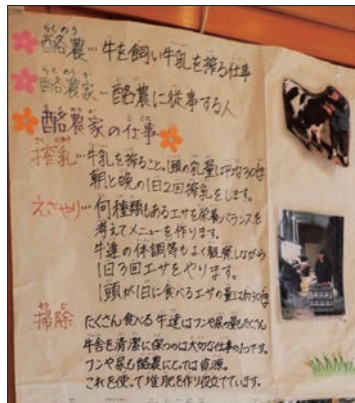 らくのう
酪農…牛を飼い牛乳を搾る仕事
らくのうか
酪農家…酪農に従事する人
酪農家の仕事
さくにゅう
搾乳…牛乳を搾ること。1頭の乳量は平均30kg
朝と晩の1日2回搾乳をします。
えさやり…何種類もあるエサを栄養バランスを
考えてメニューを作ります。
牛達の体調等もよく観察しながら
1日3回エサをやります。
1頭が1日に食べるエサの量は約30kg
そうじ
掃除 たくさん食べる牛達はフンや尿の量もたくさん
牛舎を清潔に保つのは大切な仕事の1つです。
フンや尿も酪農にとっては資源。
これを使って堆肥を作り役立てています。